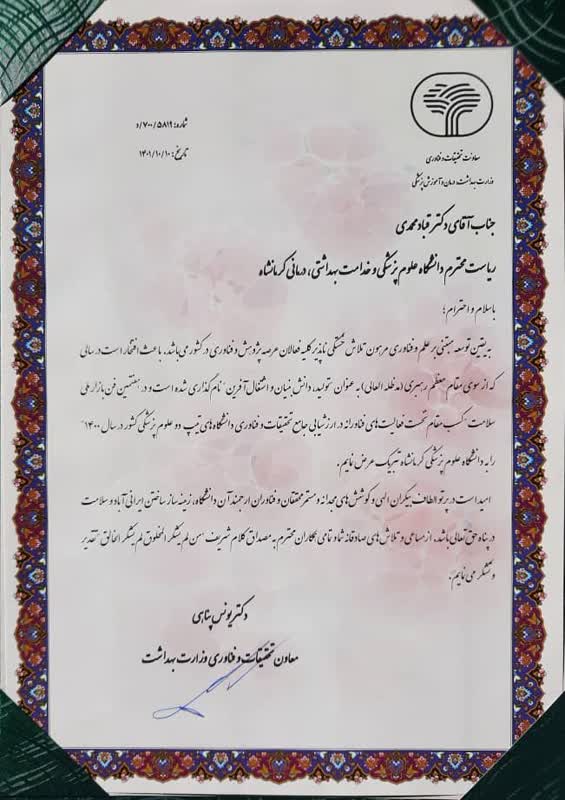 شماره: ۷۰۰/۵۸۱۹/د
تاریخ: ۱۴۰۱/۱۰/۱۰
معاونت تحقیقات و فناوری
وزارت بهداشت، درمان و آموزش پزشکی
جناب آقای دکتر قباد محمدی
ریاست محترم دانشگاه علوم پزشکی و خدامت بهداشتی، درمانی کرمانشاه
با سلام و احترام؛
بی‌یقین توسعه مبتنی بر علم و فناوری مرهون تلاش خستگی ناپذیر کلیه فعالان عرصه پژوهش و فناوری در کشور می‌باشد. باعث افتخار است در سالی
که از سوی مقام معظم رهبری (مدظله العالی) به عنوان "تولید، دانش بنیان و اشتغال آفرین" نام گذاری شده است و در هفتمین فن بازار ملی
سلامت "کسب مقام نخست فعالیت‌های فناورانه در ارزشیابی جامع تحقیقات و فناوری دانشگاه‌های تیپ دو علوم پزشکی کشور در سال ۱۴۰۰"
را به دانشگاه علوم پزشکی کرمانشاه تبریک عرض نمایم.
امید است در پرتو الطاف بیکران الهی و کوشش‌های مجدانه و مستمر محققان و فناوران ارجمند آن دانشگاه، زمینه ساز ساختن ایرانی آباد و سلامت
در پناه حق تعالی باشد. از مساعی و تلاش‌های صادقانه شما و تمامی همکاران محترم به مصداق کلام شریف "من لم یشکر المخلوق لم یشکر الخالق" تقدیر
و تشکر می نمایم.
دکتر یونس پناهی
معاون تحقیقات و فناوری وزارت بهداشت